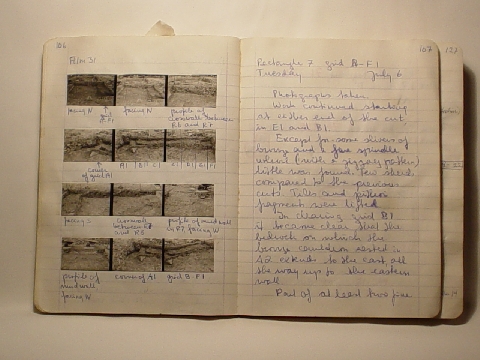 106
Film 31
facing N
facing N
profile of
crosswalk between
R6 and R7
grid F1
Corner
of grid A1
A1 B1 C1
D1 E1 F1
facing S
Crosswalk
between R7
and R8
profile of mud wall
in R7, facing W
profile of
mudwall
facing N
corner of A1
grid B-F1
107
Rectangle 7 grid B-F1
Tuesday July 6
Photographs taken.
Work continued starting
at either end of the cut
in E1 and B1.
Except for some slivers of
bronze and a fine spindle
whorl (with a zigzag pattern)
little was found. Few sherds
compared to the previous
cuts. Tiles and pithos
fragments were lifted.
In clearing grid B1
it became clear that the
bedrock on which the
bronze cauldron rested in
A2 extends to the east all
the way up to the eastern
wall.
Part of at least two fine
121